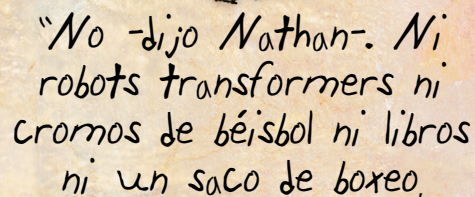 "No -dijo Nathan-. Ni
robots transformers ni
cromos de béisbol ni libros
ni un saco de boxeo,